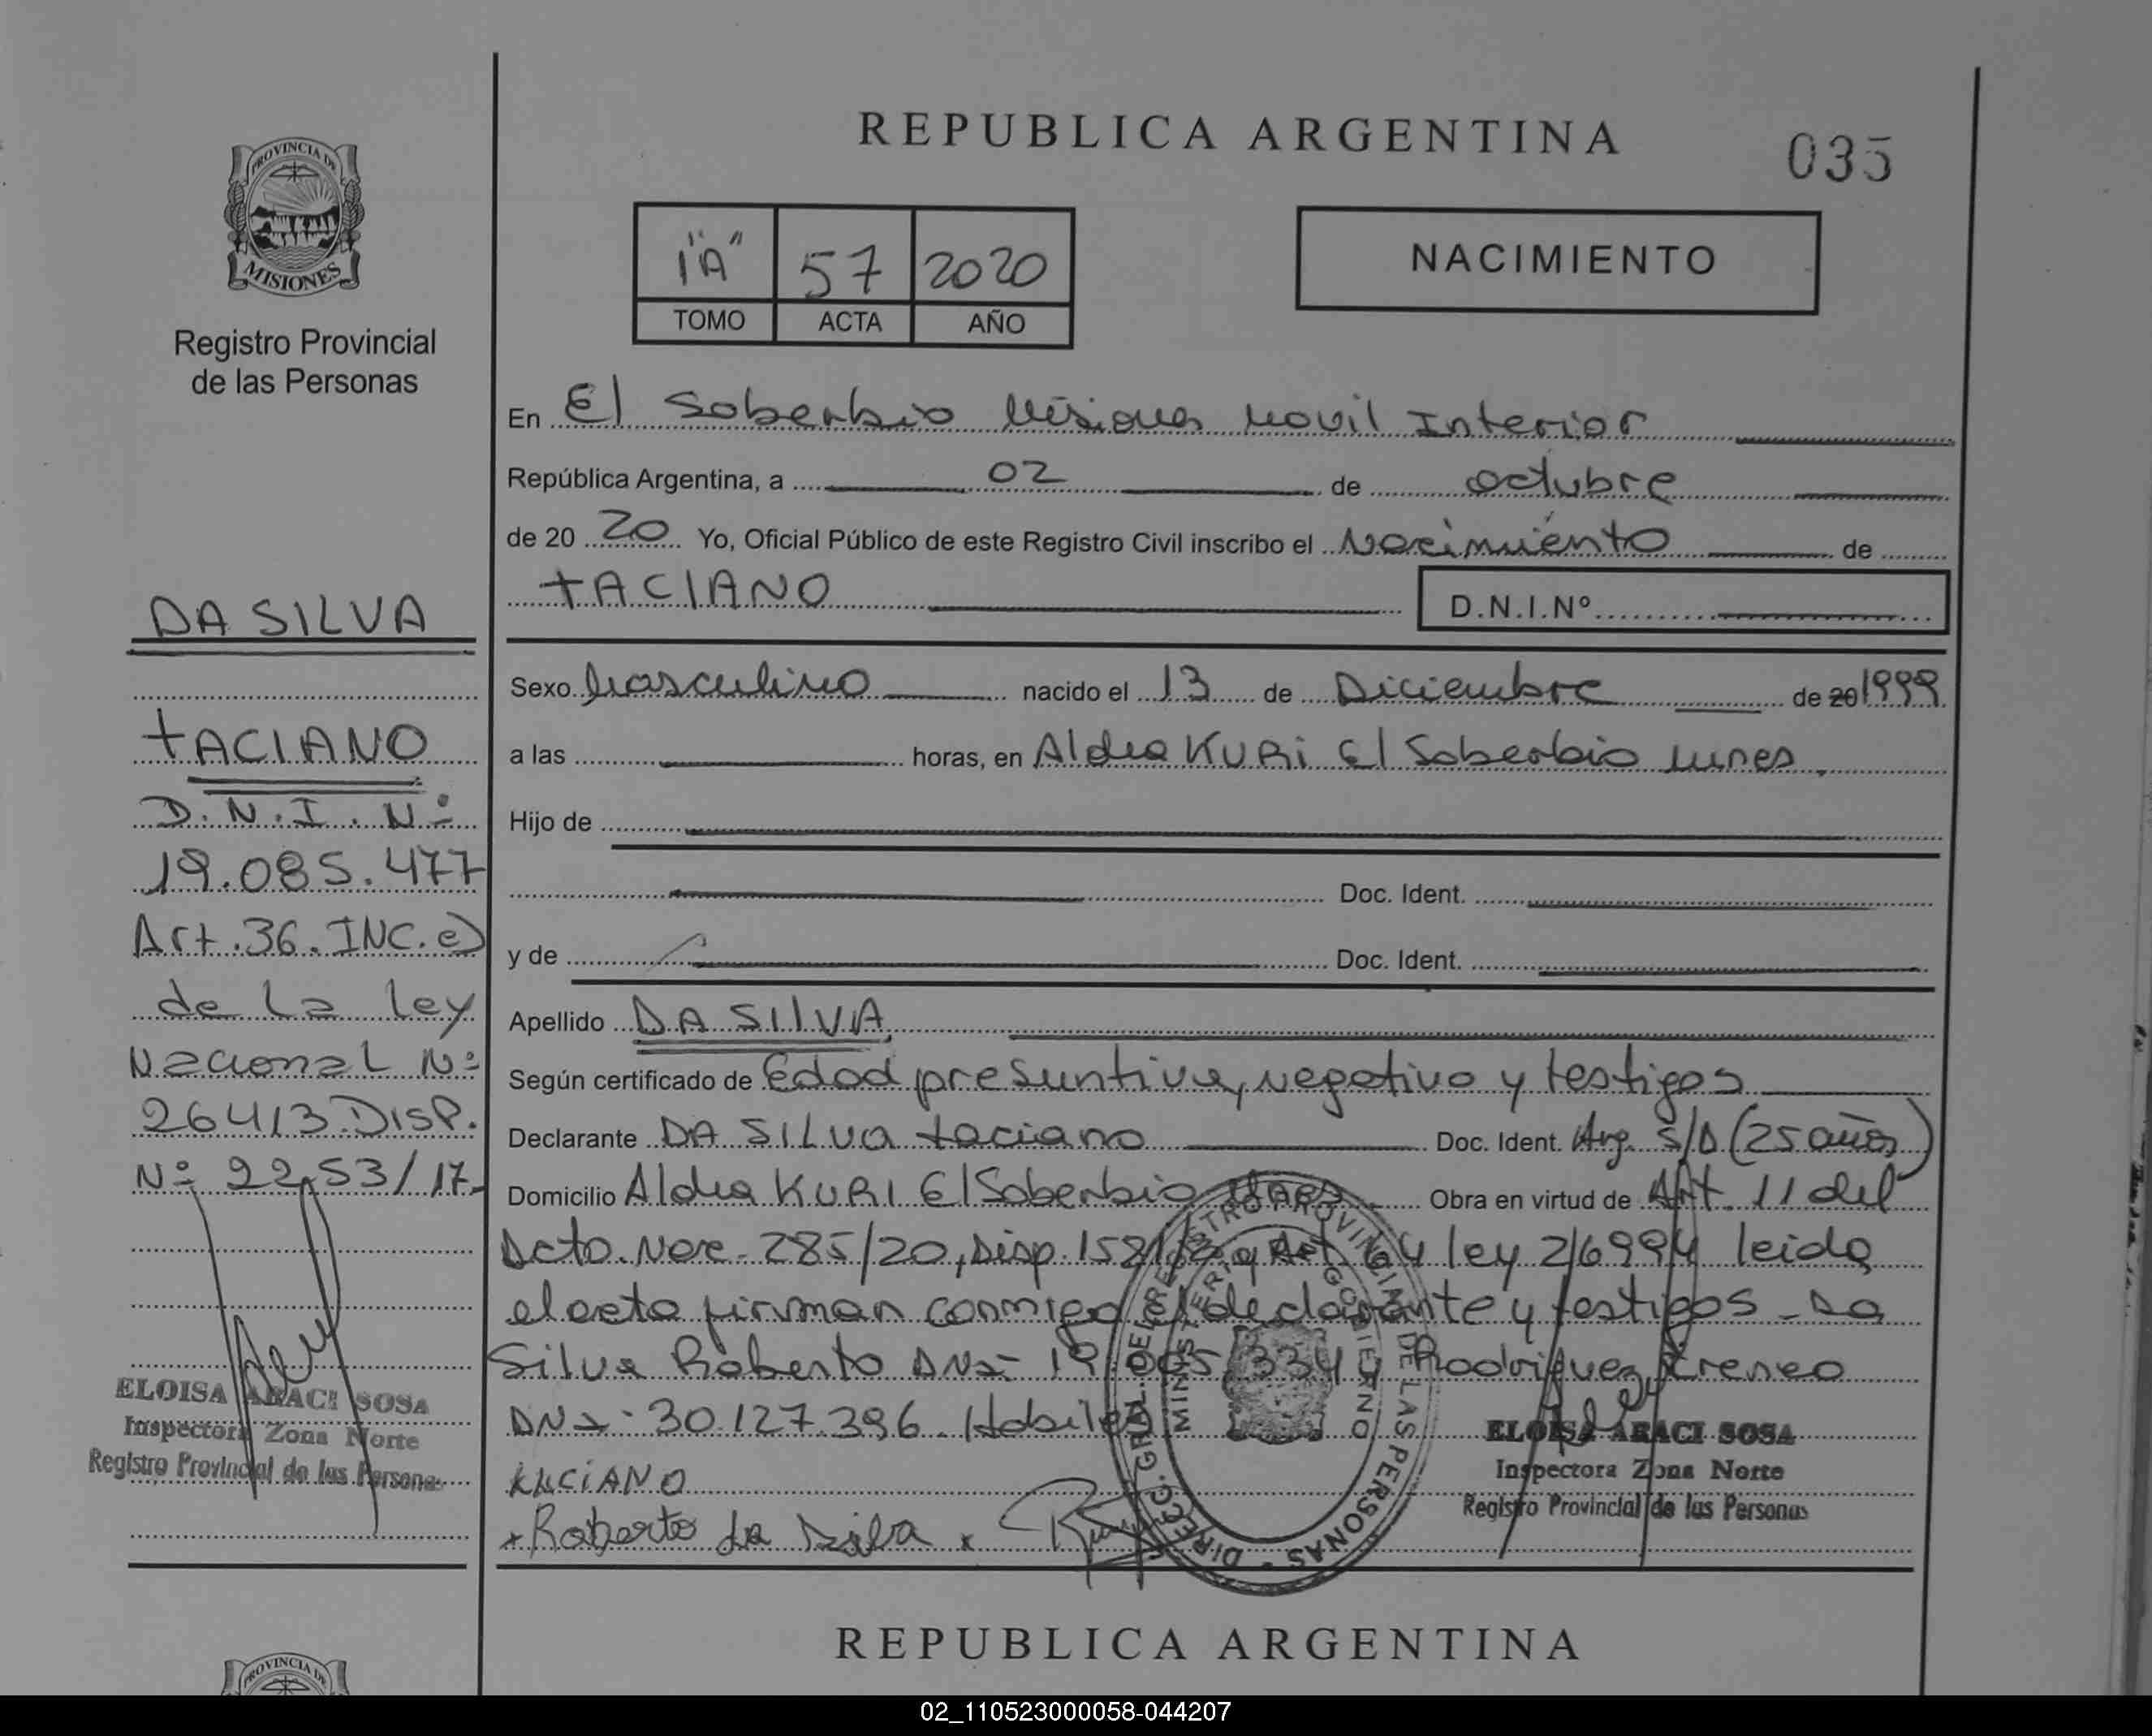 REPUBLICA ARGENTINA
035
PROVINCIA DE
MISIONES
Registro Provincial
de las Personas
1"A" 57 2020
TOMO ACTA AÑO
NACIMIENTO
En El Soberbio Misiones Movil Interior
República Argentina, a 02 de octubre
de 20 20 Yo, Oficial Público de este Registro Civil inscribo el Nacimiento de
TACIANO D.N.I.Nº
Sexo Masculino nacido el 13 de Diciembre de 20 1999
a las horas, en Aldea KURI El Soberbio
Hijo de
Doc. Ident.
y de Doc. Ident.
Apellido DA SILVA
Según certificado de Edad presuntiva, negativo y testigos
Declarante DA SILVA taciano Doc. Ident. Arg. S/D (25 años)
Domicilio Aldea KURI El Soberbio Obra en virtud de Art. 11 del
Dcto. Nac. 285/20, Disp. ley 26994 leida
el acta firman conmigo el declarante y testigos - Da
Silva Roberto DNI Rodriguez, Ireneo
DNI: 30.127.396. Habiles
Roberto da Silva
DA SILVA
TACIANO
D.N.I. Nº
19.085.477
Art. 36. INC. e)
de La ley
Nacional Nº
26413 Disp.
Nº 2253/17
ELOISA ARACI SOSA
Inspectora Zona Norte
Registro Provincial de las Personas
ELOISA ARACI SOSA
Inspectora Zona Norte
Registro Provincial de las Personas
DIRECC. GRAL. DEL REGISTRO PROVINCIAL DE LAS PERSONAS
MINISTERIO GOBIERNO
REPUBLICA ARGENTINA
PROVINCIA DE
02_110523000058-044207